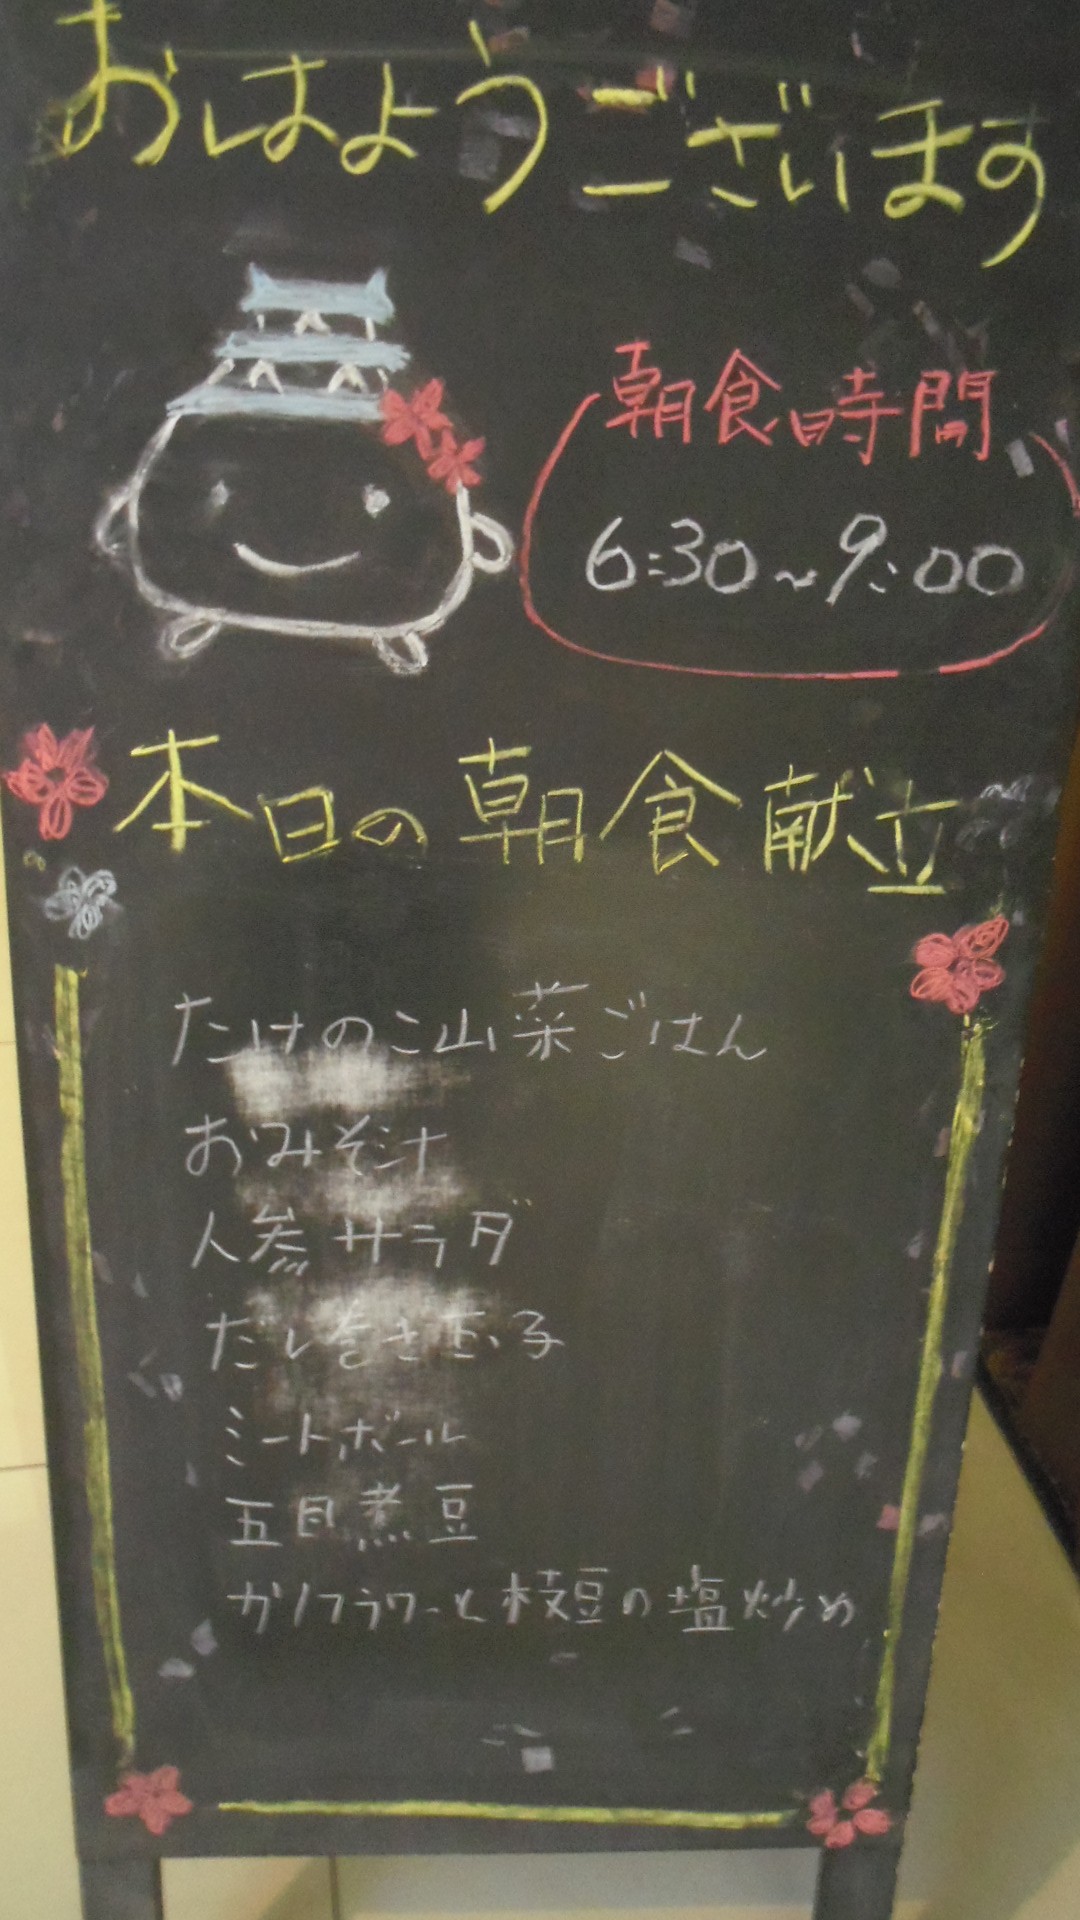 おはようございます
朝食時間
6:30~9:00
本日の朝食献立
たけのこ山菜ごはん
おみそ汁
人参サラダ
だし巻き玉子
ミートボール
五目煮豆
カリフラワーと枝豆の塩炒め